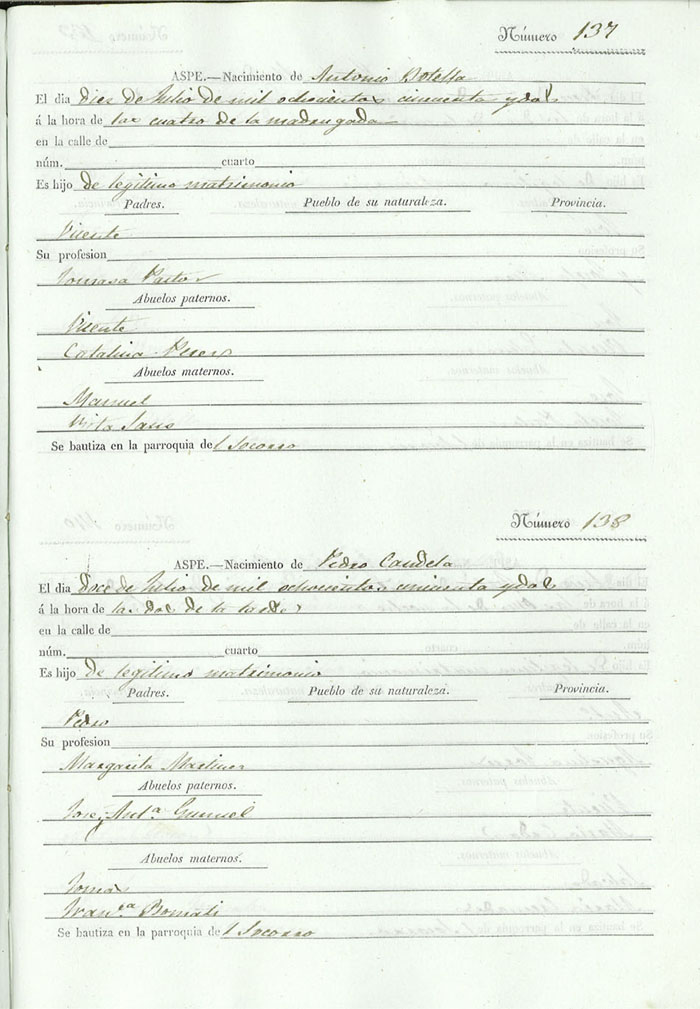 Número 137
ASPE.—Nacimiento de Antonio Botella
El dia diez de Julio de mil ochocientos cincuenta y dos
á la hora de las cuatro de la madrugada
en la calle de
núm. cuarto
Es hijo de legitimo matrimonio
Padres. Pueblo de su naturaleza. Provincia.
Vicente
Su profesion
Tomasa Pastor
Abuelos paternos.
Vicente
Catalina Perez
Abuelos maternos.
Manuel
Rita
Se bautiza en la parroquia del Socorro
Número 138
ASPE.—Nacimiento de Pedro Candela
El dia doce de Julio de mil ochocientos cincuenta y dos
á la hora de las dos de la tarde
en la calle de
núm. cuarto
Es hijo de legitimo matrimonio
Padres. Pueblo de su naturaleza. Provincia.
Pedro
Su profesion
Margarita Martinez
Abuelos paternos.
Jose, Antª
Abuelos maternos.
Tomas
Franca Bonati
Se bautiza en la parroquia del Socorro